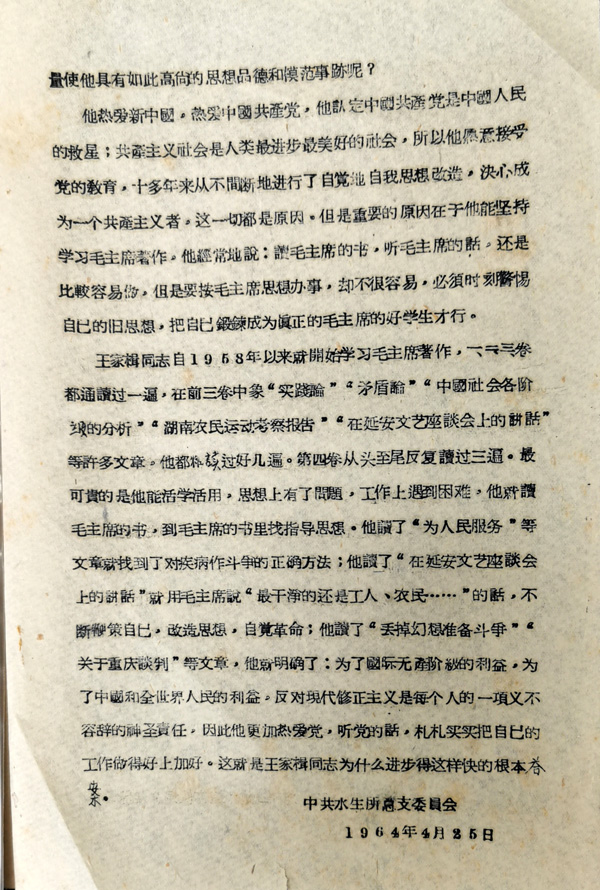 量使他具有如此高尚的思想品德和模范事跡呢？
他热爱新中國，热爱中國共產党，他認定中國共產党是中國人民
的救星；共產主义社会是人类最进步最美好的社会，所以他愿意接受
党的敎育，十多年来从不間断地进行了自覚地自我思想改造，决心成
为一个共產主义者。这一切都是原因。但是重要的原因在于他能坚持
学习毛主席著作。他經常地說：讀毛主席的书，听毛主席的話。还是
比較容易做，但是要按毛主席思想办事，却不很容易，必須时刻警惕
自已的旧思想，把自已鍛鍊成为眞正的毛主席的好学生才行。
王家楫同志自1958年以来就開始学习毛主席著作，一二三卷
都通讀过一遍，在前三卷中象“实践論”“矛盾論”“中國社会各阶
级的分析”“湖南农民运动考察报告”“在延安文艺座談会上的讲話”
等許多文章。他都精读过好几遍。第四卷从头至尾反复讀过三遍。最
可貴的是他能活学活用，思想上有了問題，工作上遇到困难，他就讀
毛主席的书，到毛主席的书里找指导思想。他讀了“为人民服务”等
文章就找到了对疾病作斗争的正确方法；他讀了“在延安文艺座談会
上的讲話”就用毛主席說“最干淨的还是工人、农民……”的話，不
断鞭策自已，改造思想，自覚革命；他讀了“丢掉幻想准备斗爭”“
关于重庆談判”等文章，他就明确了：为了國际无產阶級的利益，为
了中國和全世界人民的利益。反对现代修正主义是每个人的一項义不
容辞的神圣責任，因此他更加热爱党，听党的話，札札实实把自已的
工作做得好上加好。这就是王家楫同志为什么进步得这样快的根本答
案。
中共水生所总支委員会
1964年4月25日